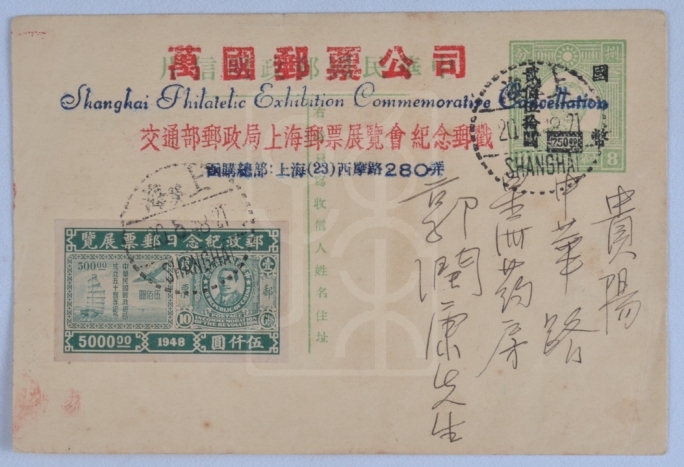 萬國郵票公司
Shanghai Philatelic Exhibition Commemorative Cancellation
交通部郵政局上海郵票展覽會紀念郵戳
函購總部:上海(23)西摩路280弄
國幣
貳佰伍拾圓
250
8
上海
20. 5. 48. 21
SHANGHAI
上海
20. 5. 48. 21
SHANGHAI
右邊只寫收信人姓名住址
郵政紀念日郵票展覽
500.00
10
5000.00
1948
伍仟圓
貴陽
中華路
郭潤康先生